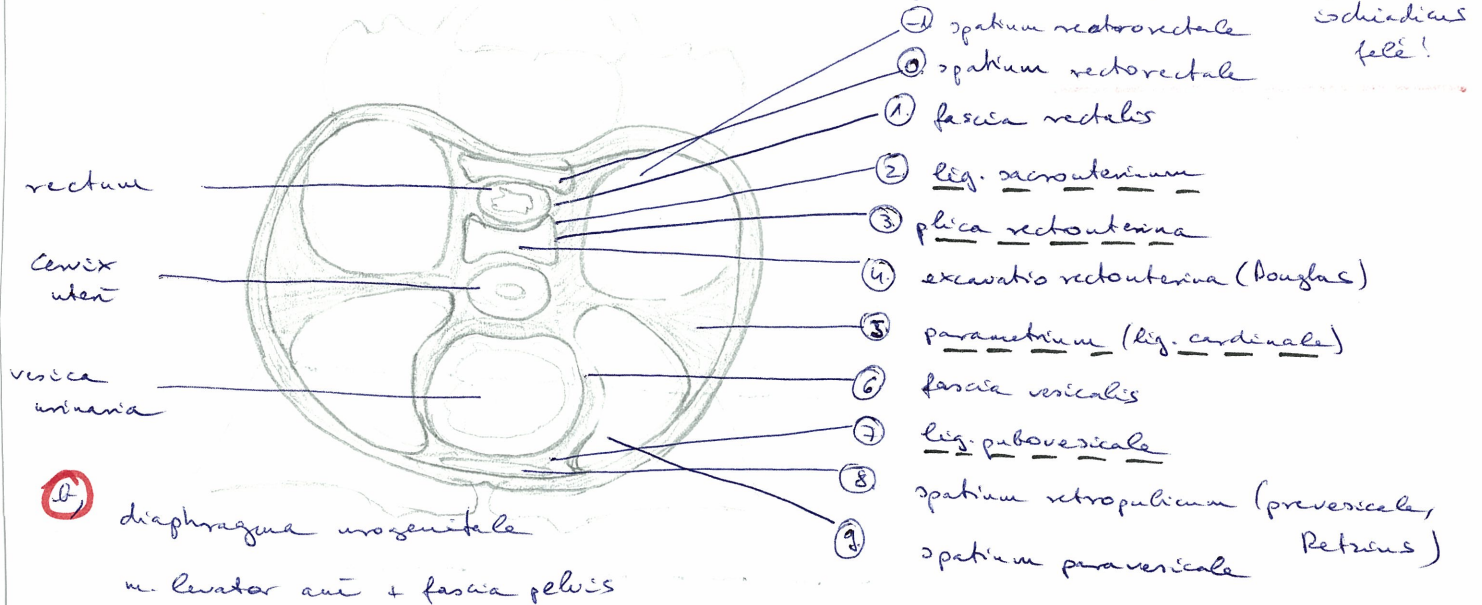 -1. spatium reatrorectale
ischiadicus
felé!
0. spatium rectorectale
1. fascia rectalis
2. lig. sacrouterinum
3. plica rectouterina
4. excavatio rectouterina (Douglas)
5 parametrium (lig. cardinale)
6 fascia vesicalis
7 lig. pubovesicale
8 spatium retropubicum (prevesicale,
Retzius)
9. spatium paravesicale
rectum
Cervix
uteri
vesica
urinaria
b,
diaphragma urogenitale
m. levator ani + fascia pelvis